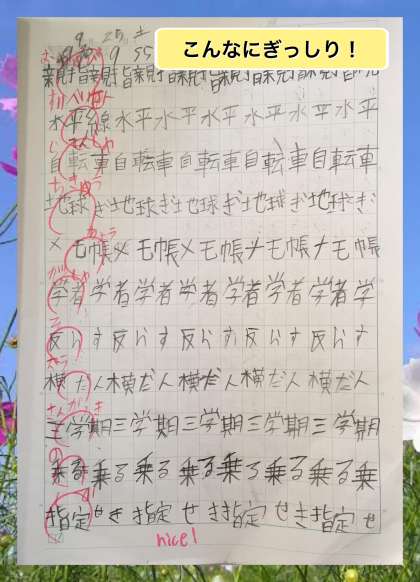 こんなにぎっしり！
水平線水平水平水平水平水平水平
自転車自転車自転車自転車自転車
地球ぎ地球ぎ地球ぎ地球ぎ地球ぎ
メモ帳メモ帳メモ帳メモ帳メモ帳
学者学者学者学者学者学者学者学
反らす反らす反らす反らす反らす
横だん横だん横だん横だん横だん
三学期三学期三学期三学期三学期
乗る乗る乗る乗る乗る乗る乗る乗
指定せき指定せき指定せき指定せ
nice!